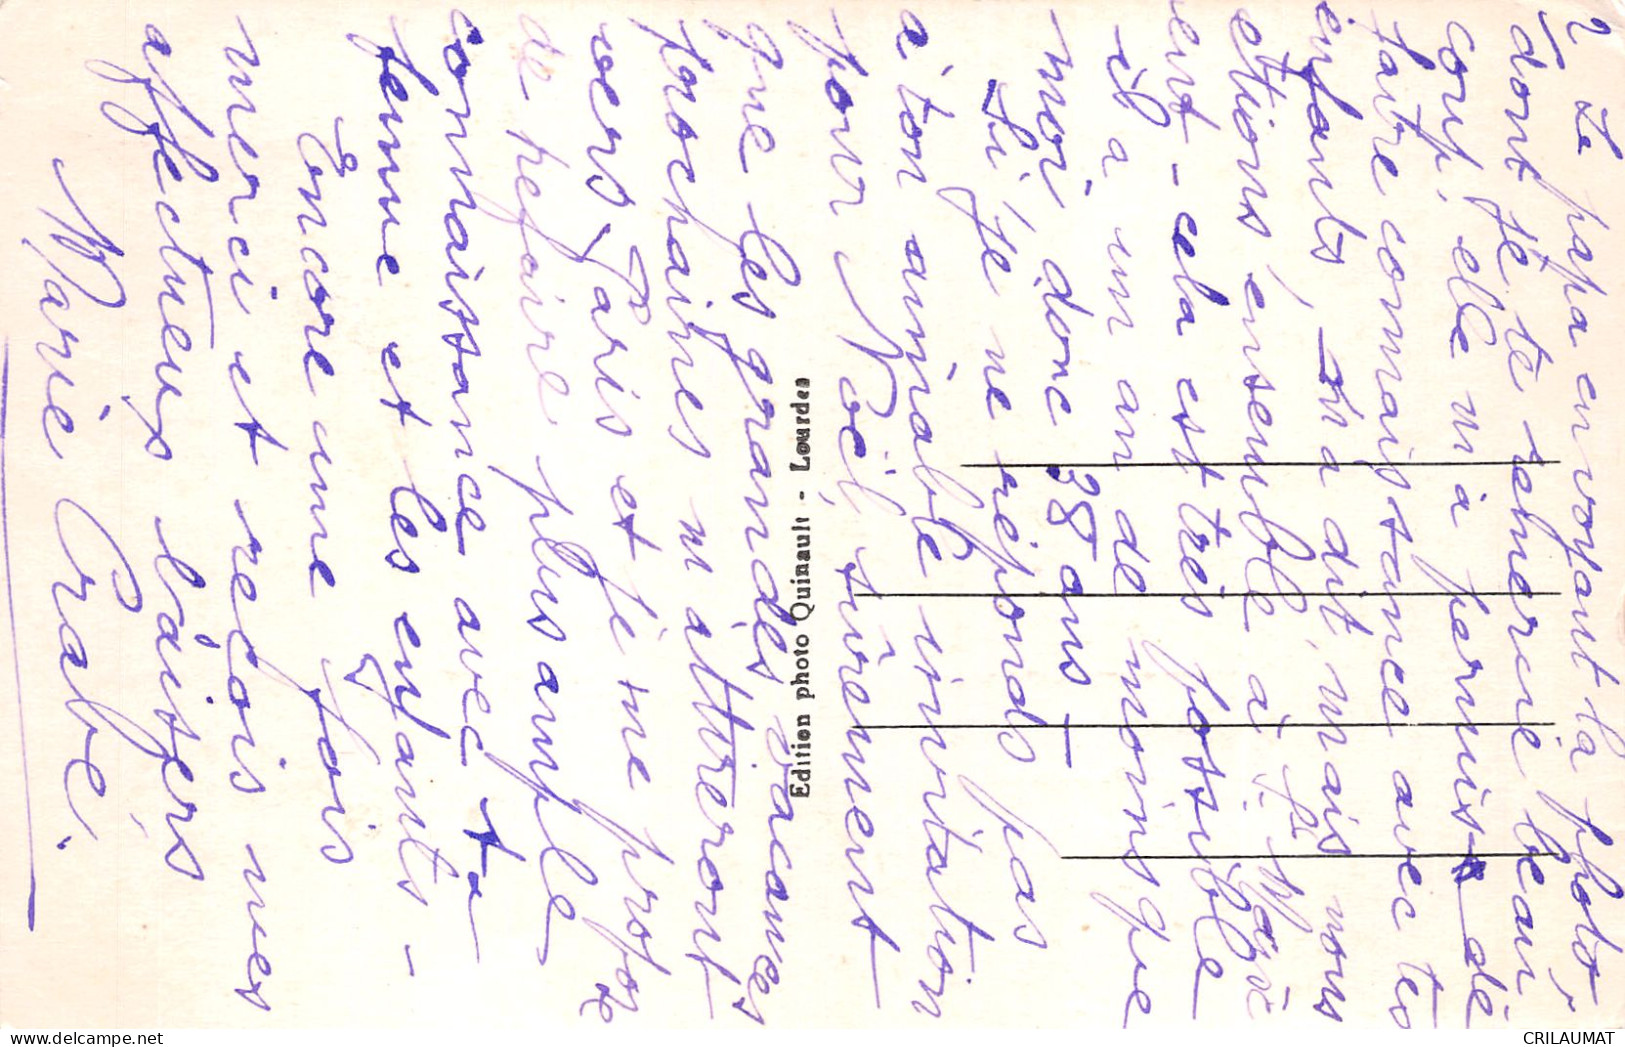 2 Le papa en voyant la photo
dont je te remercie beau
coup, elle m'a permis de
faire connaissance avec tes
enfants, m'a dit, mais nous
étions ensemble à Marie
ert - cela est très possible
il a un an de moins que
moi, donc 38 ans -
Si je ne réponds pas
à ton aimable invitation
pour Noël, sûrement
que les grandes vacances
prochaines m'attireront
vers Paris et je me propose
de refaire plus ample
connaissance avec ta
femme et les enfants -
Encore une fois
merci et reçois mes
affectueux baisers
Marie Crabé.
Edition photo Quinault - Lourdes
CRILAUMAT